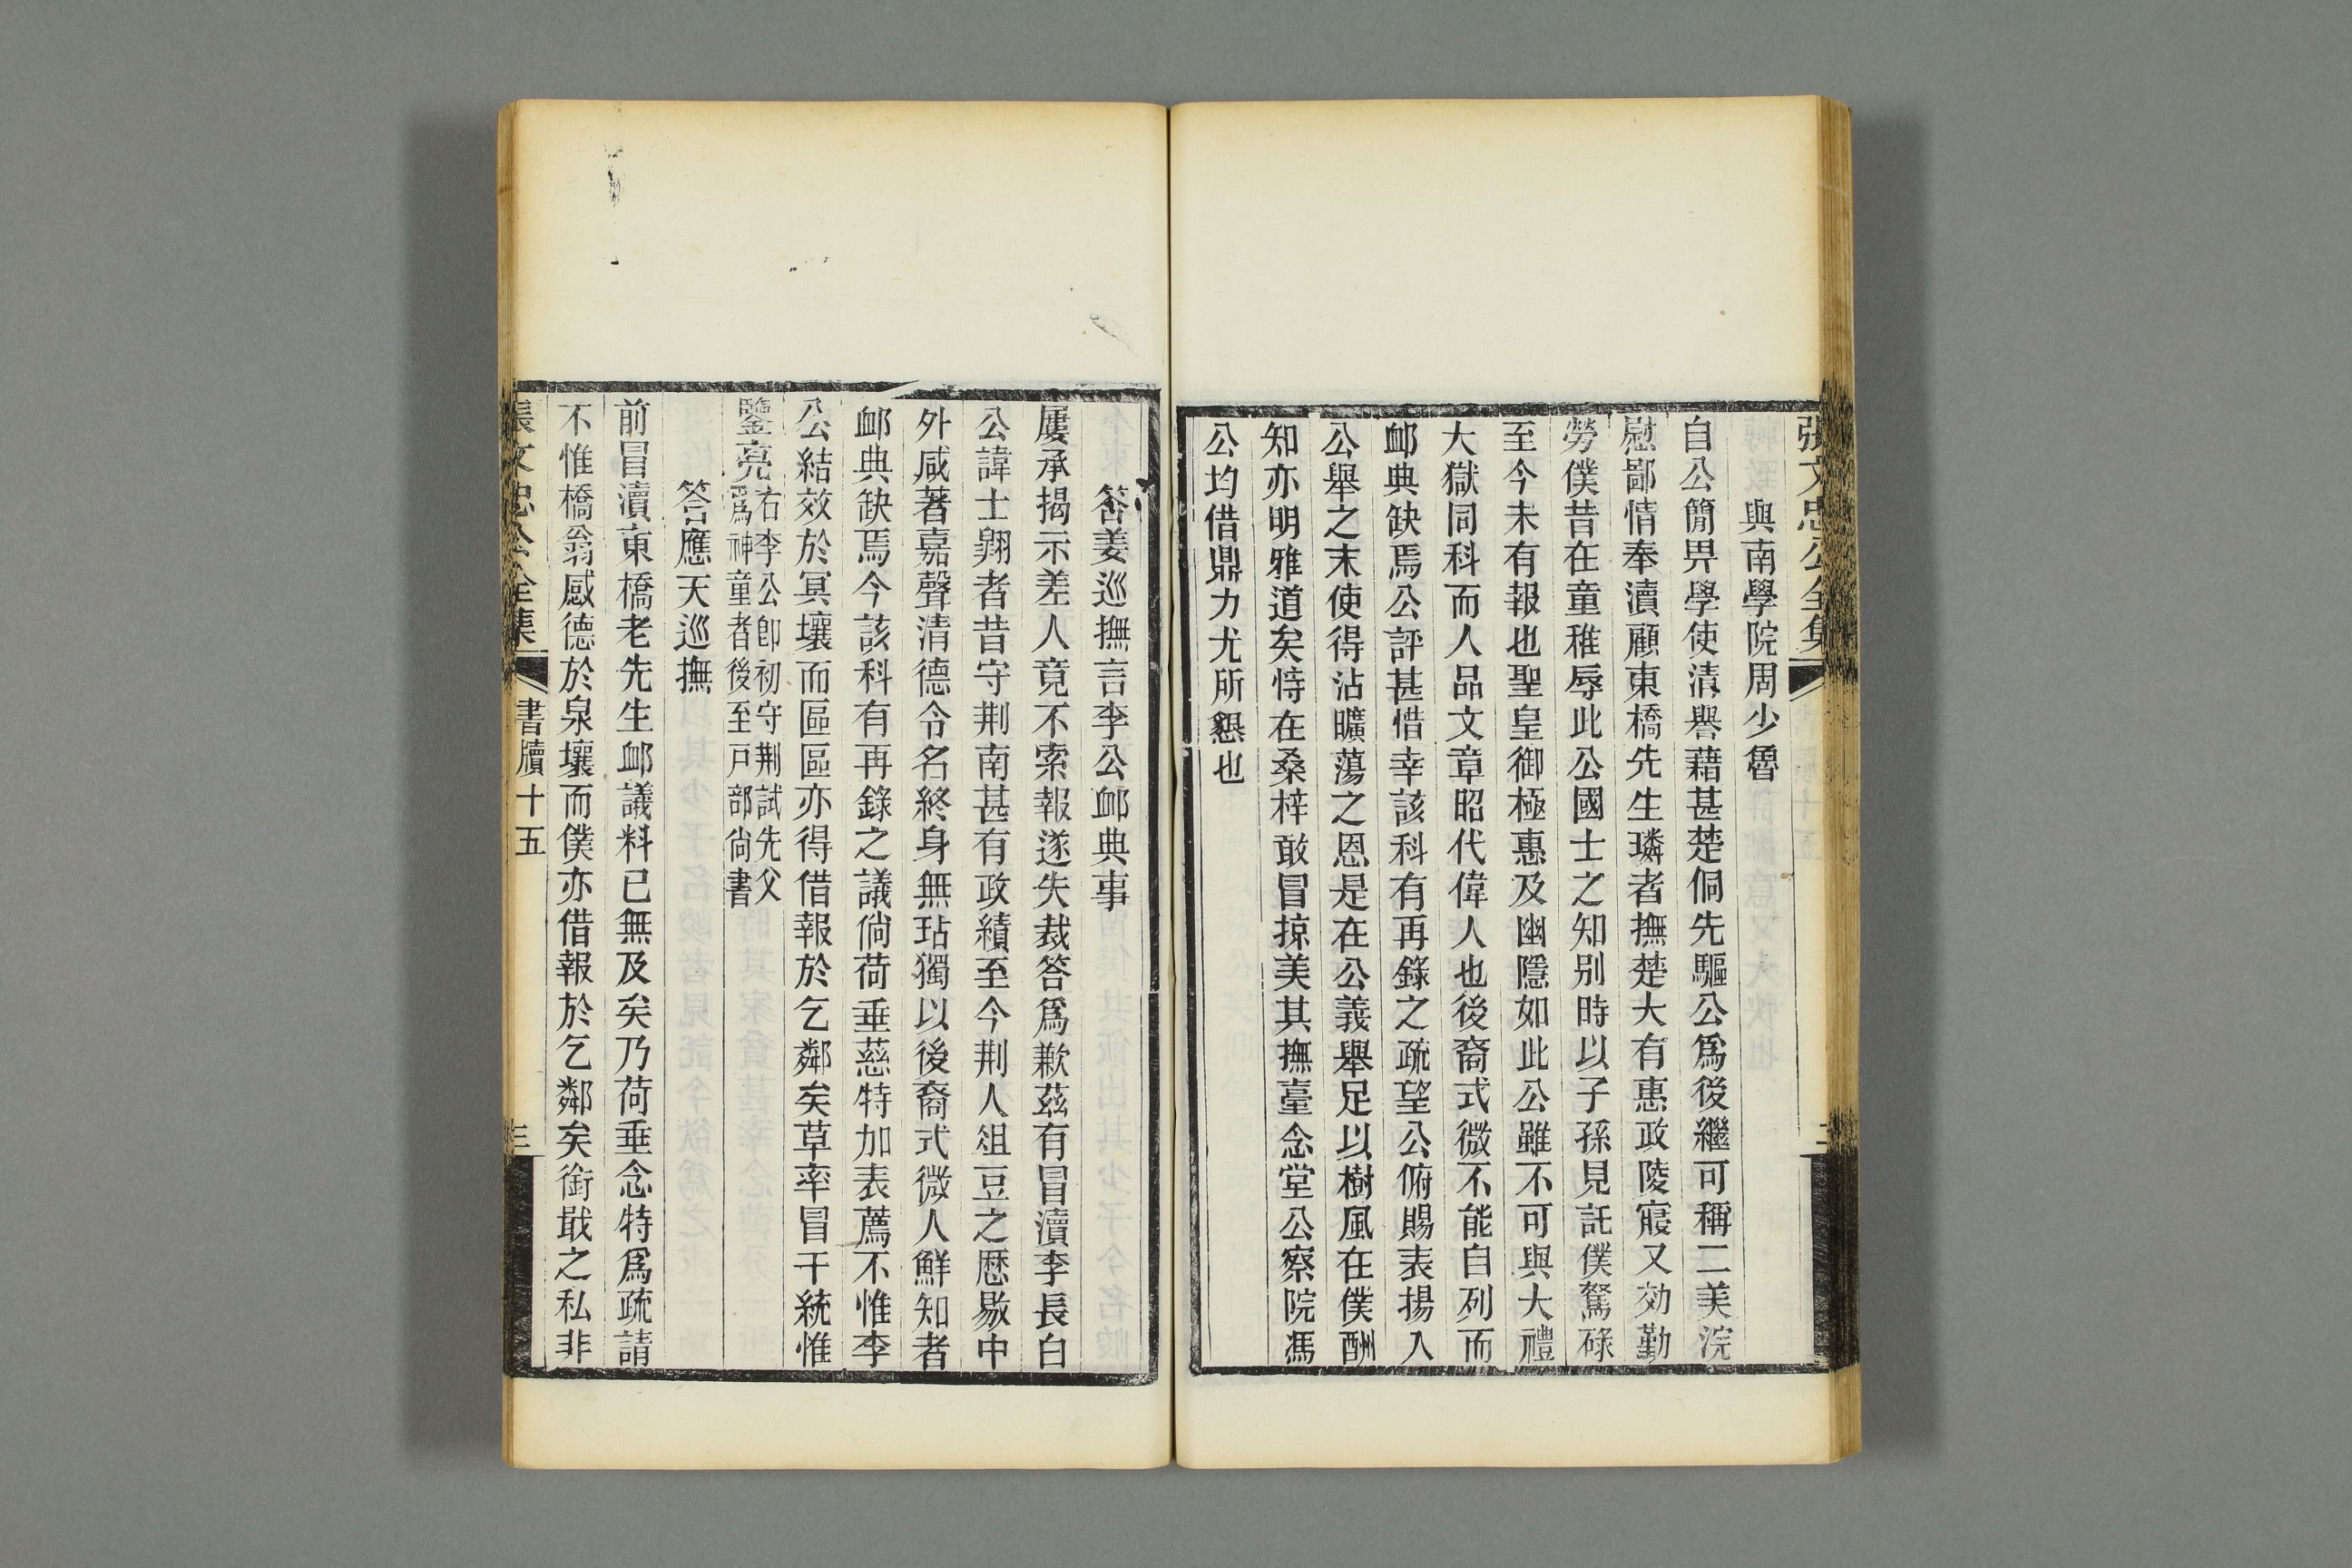 張文忠公全集
與南學院周少魯
自公簡畀學使清譽藉甚楚侗先驅公爲後繼可稱二美浣
慰鄙情奉瀆顧東橋先生璘者撫楚大有惠政陵寢又効勤
勞僕昔在童稚辱此公國士之知别時以子孫見託僕駑碌
至今未有報也聖皇御極惠及幽隱如此公雖不可與大禮
大獄同科而人品文章昭代偉人也後裔式微不能自列而
卹典缺焉公評甚惜幸該科有再錄之疏望公俯賜表揚入
公舉之末使得沾曠蕩之恩是在公義舉足以樹風在僕酬
知亦明雅道矣恃在桑梓敢冒掠美其撫臺念堂公察院馮
公均借鼎力尤所懇也
答姜巡撫言李公卹典事
屢承揭示差人竟不索報遂失裁答爲歉茲有冒瀆李長白
公諱士翺者昔守荆南甚有政績至今荆人俎豆之歴敭中
外咸著嘉聲清德令名終身無玷獨以後裔式微人鮮知者
卹典缺焉今該科有再錄之議倘荷垂慈特加表薦不惟李
公結效於冥壤而區區亦得借報於乞鄰矣草率冒干統惟
鑒亮右李公卽初守荆試先父
爲神童者後至戸部尙書
答應天巡撫
前冒瀆東橋老先生卹議料已無及矣乃荷垂念特爲疏請
不惟橋翁感德於泉壤而僕亦借報於乞鄰矣銜戢之私非
張文忠公全集
書牘十五
三